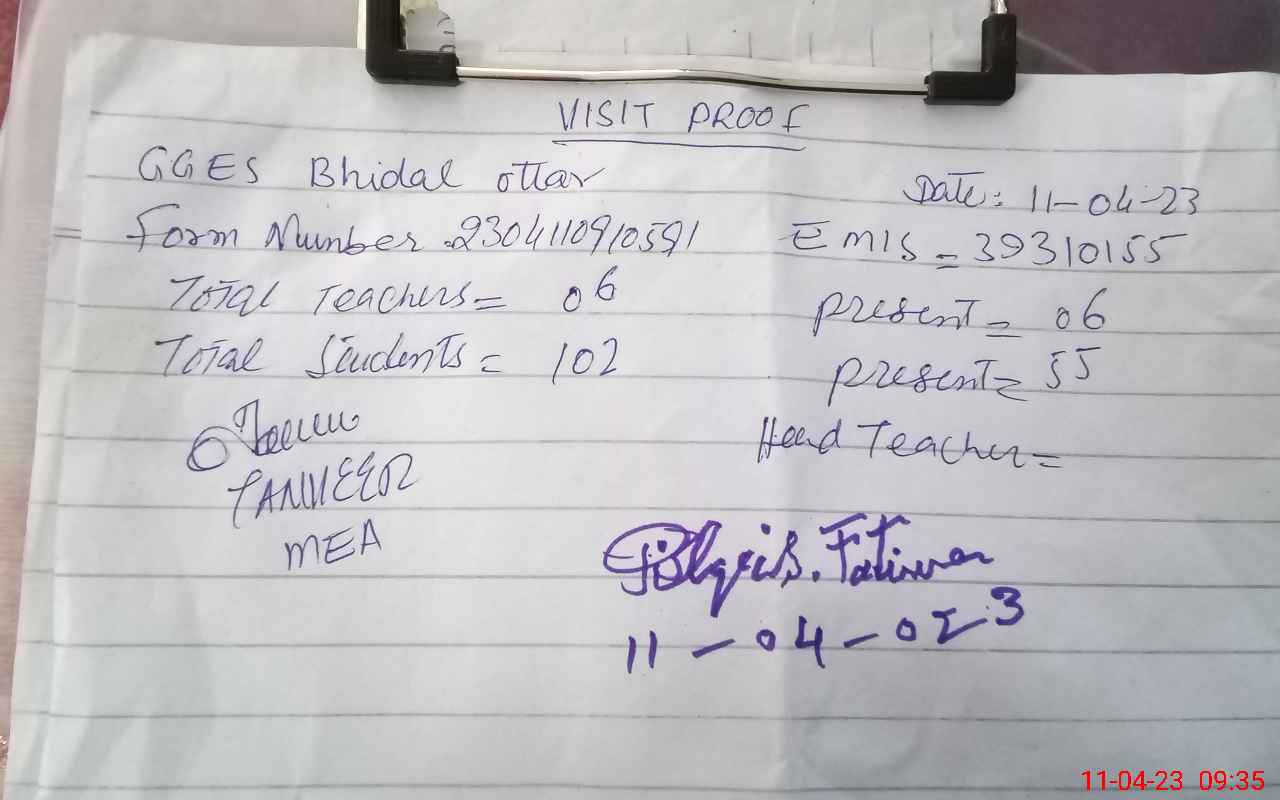 VISIT PROOF
GGES Bhidal ottar
Date: 11-04-23
Form Number .2304110910591
EMIS = 39310155
Total Teachers = 06
present = 06
Total Students = 102
present = 55
Head Teacher =
TANVEER
MEA
Bilqis. Fatima
11-04-023
11-04-23 09:35